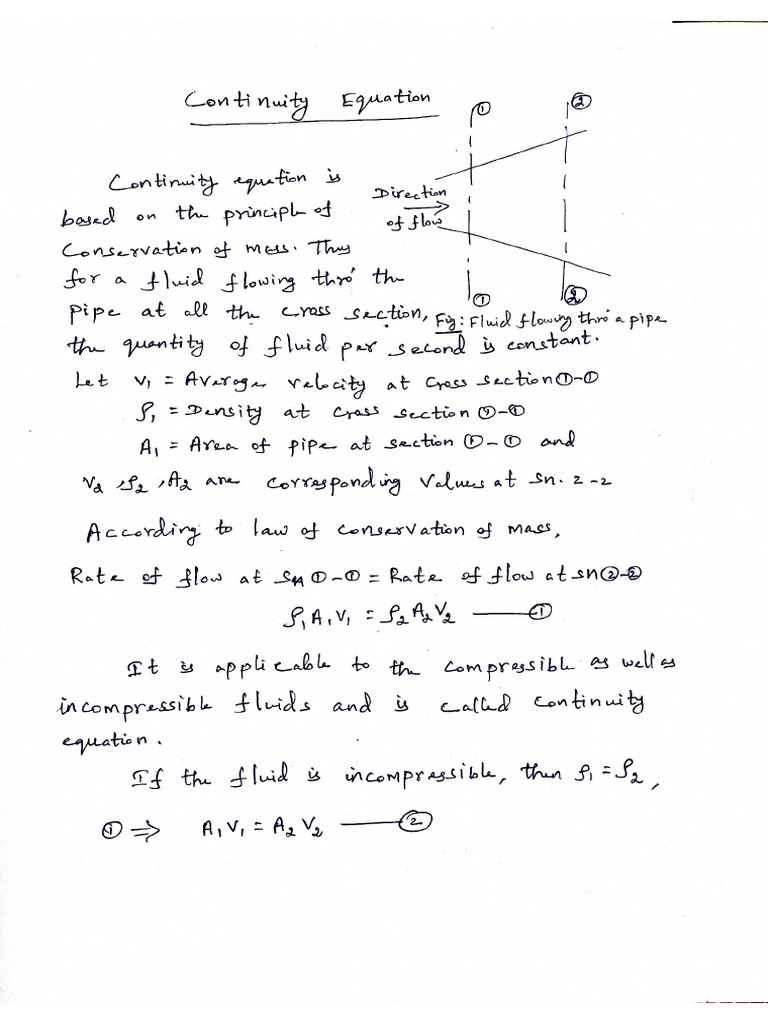 Continuity Equation
① ②
Continuity equation is
based on the principle of
Conservation of mass. Thus
for a fluid flowing thro' the
pipe at all the cross section,
the quantity of fluid per second is constant.
Direction
of flow
① ②
Fig: Fluid flowing thro' a pipe
Let V₁ = Average velocity at cross section ①-①
ρ₁ = Density at cross section ①-①
A₁ = Area of pipe at section ①-① and
V₂, ρ₂, A₂ are corresponding values at sn. 2-2
According to law of conservation of mass,
Rate of flow at sn ①-① = Rate of flow at sn ②-②
ρ₁A₁V₁ = ρ₂A₂V₂ —— ①
It is applicable to the compressible as well as
incompressible fluids and is called continuity
equation.
If the fluid is incompressible, then ρ₁ = ρ₂,
① ⇒ A₁V₁ = A₂V₂ —— ②